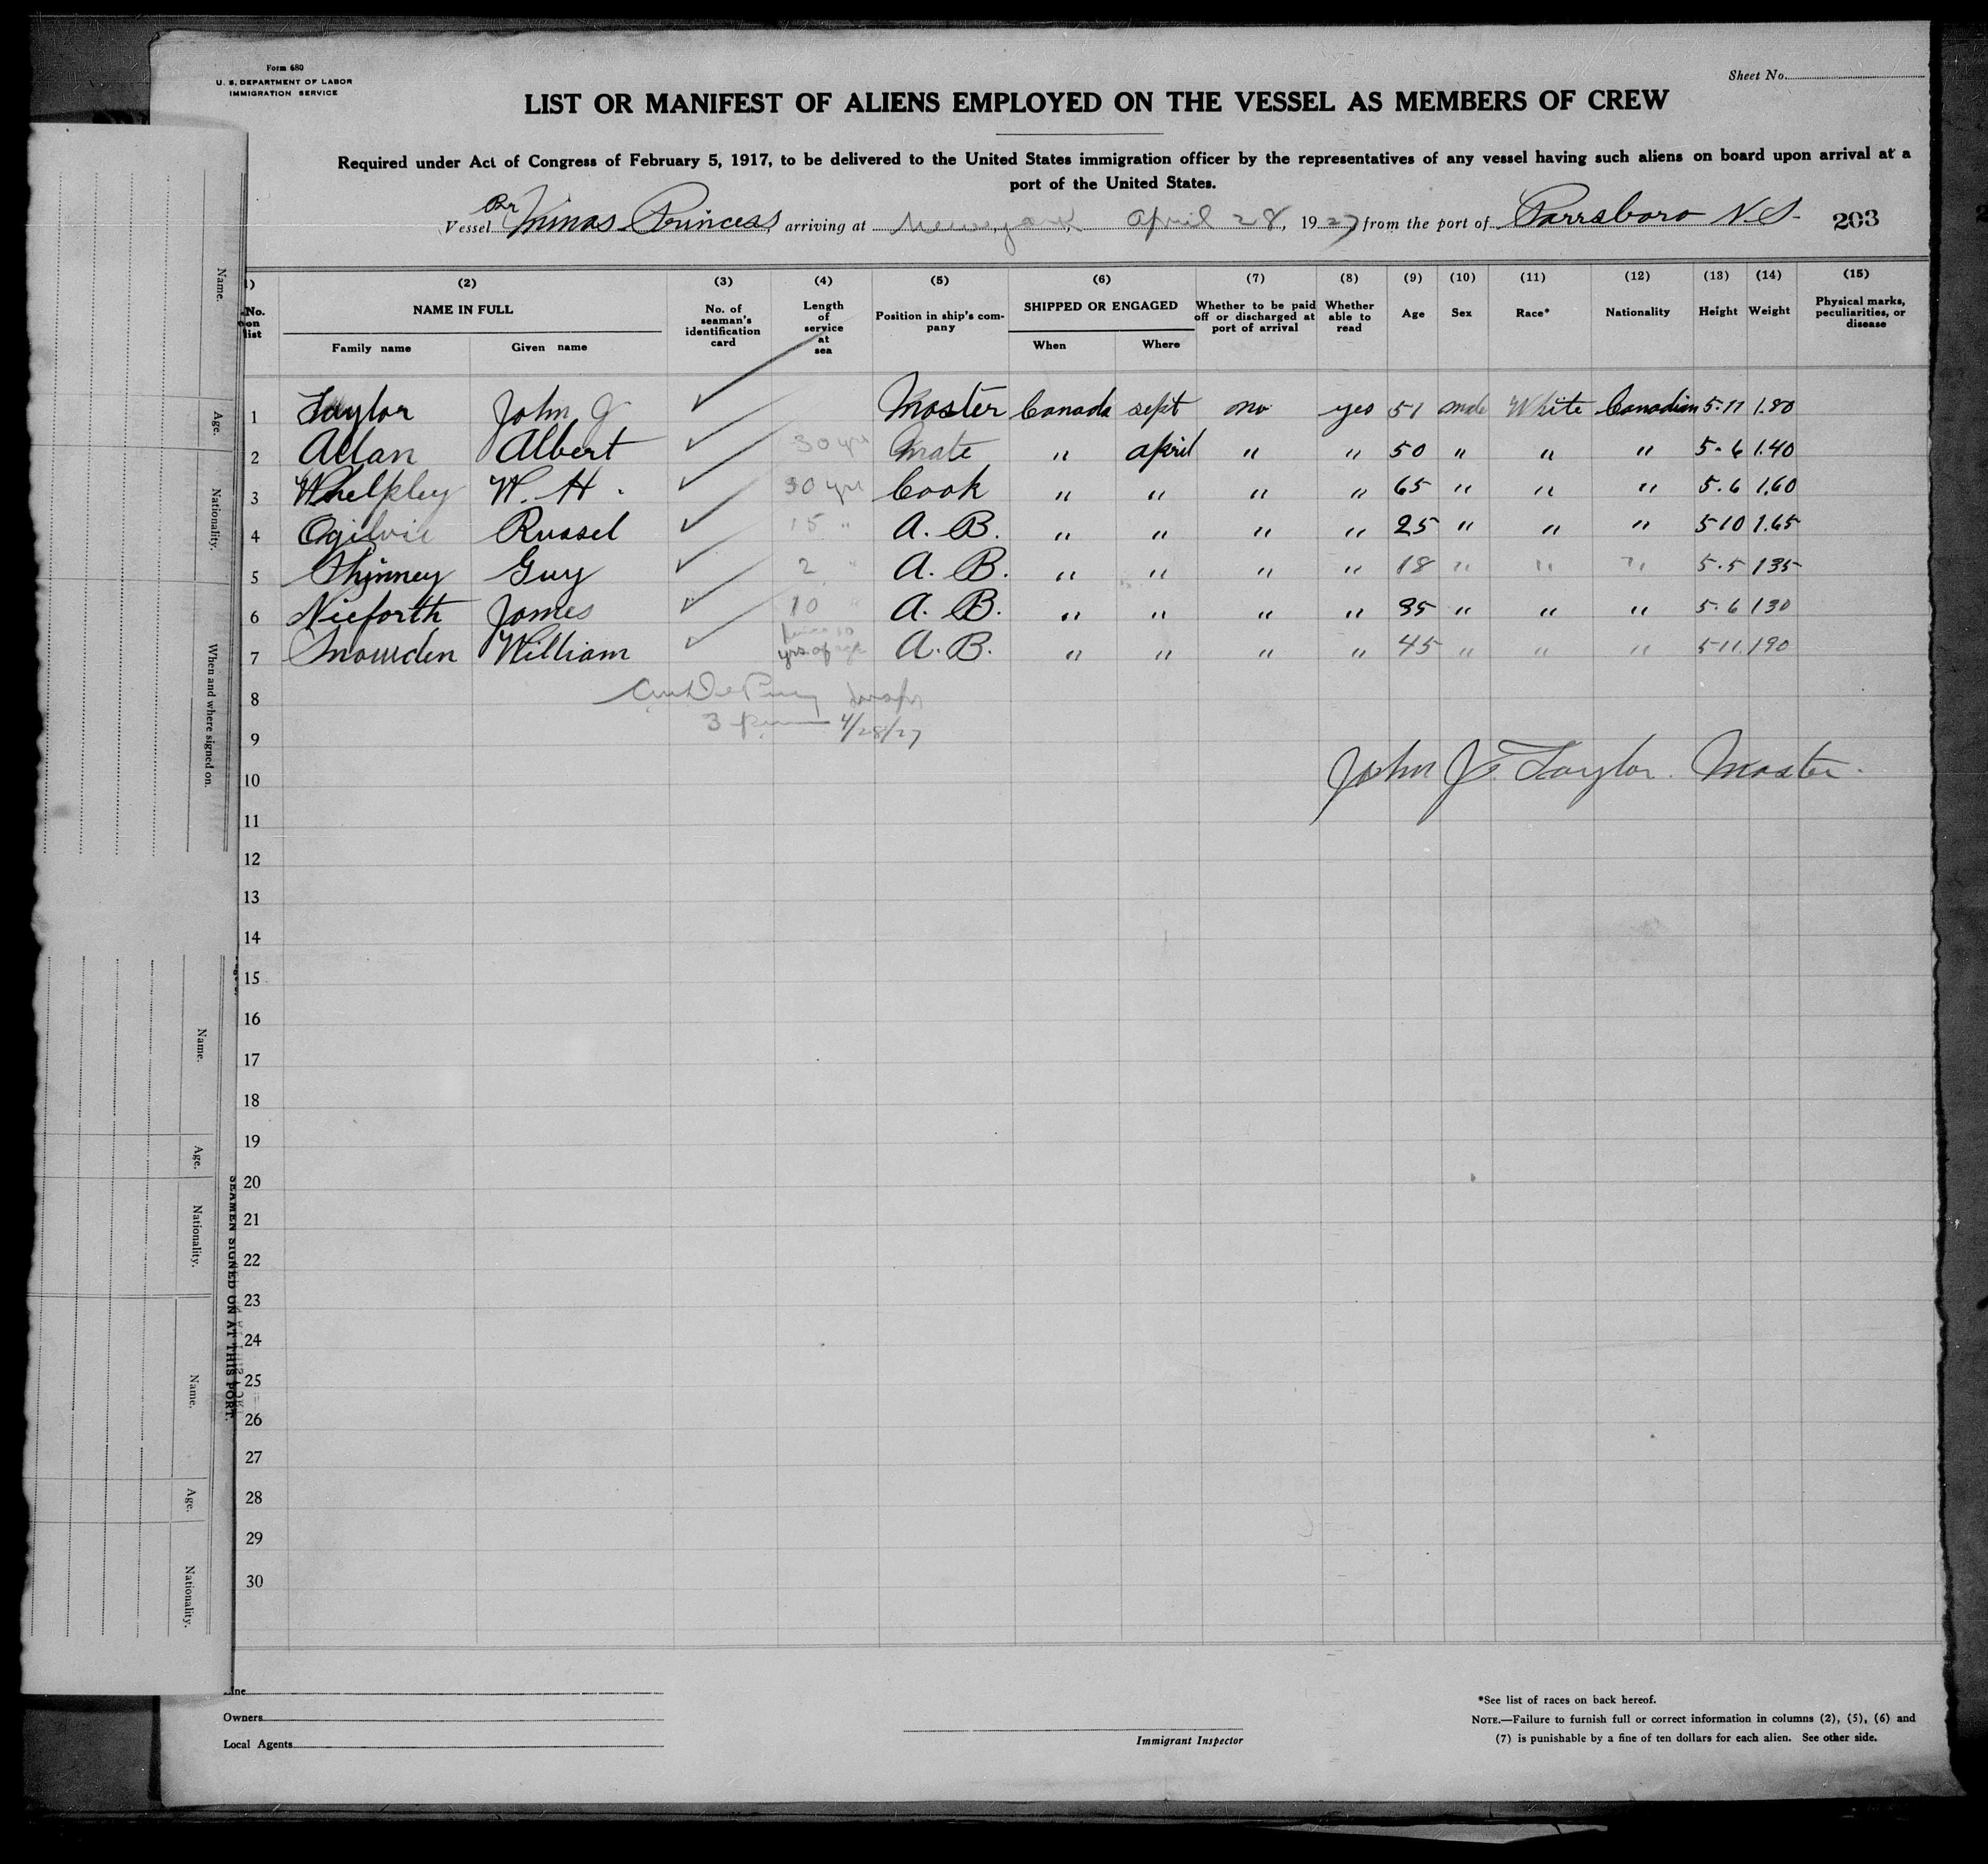 Form 680
U. S. DEPARTMENT OF LABOR
IMMIGRATION SERVICE
Sheet No.
LIST OR MANIFEST OF ALIENS EMPLOYED ON THE VESSEL AS MEMBERS OF CREW
Required under Act of Congress of February 5, 1917, to be delivered to the United States immigration officer by the representatives of any vessel having such aliens on board upon arrival at a
port of the United States.
Vessel Br Minas Princess, arriving at New york, April 28, 1927, from the port of Parrsboro N.S. 203
(1) (2) (3) (4) (5) (6) (7) (8) (9) (10) (11) (12) (13) (14) (15)
No. on list NAME IN FULL Family name Given name No. of seaman's identification card Length of service at sea Position in ship's company SHIPPED OR ENGAGED When Where Whether to be paid off or discharged at port of arrival Whether able to read Age Sex Race* Nationality Height Weight Physical marks, peculiarities, or disease
1 Taylor John J ✓ Master Canada sept no yes 51 male White Canadian 5-11 1.80
2 Allan Albert ✓ 30 yrs Mate " april " " 50 " " " 5-6 1.40
3 Whelpley W. H. ✓ 30 yrs Cook " " " " 65 " " " 5.6 1.60
4 Ogilvie Russel ✓ 15 " A. B. " " " " 25 " " " 5-10 1.65
5 Phinney Guy ✓ 2 " A. B. " " " " 18 " " " 5.5 135
6 Nieforth James ✓ 10 " A. B. " " " " 35 " " " 5.6 130
7 Snowden William ✓ yrs. of age A. B. " " " " 45 " " " 5-11 190
8
3 pm 4/28/27
9
John J. Taylor. Master.
10
11
12
13
14
15
16
17
18
19
20
21
22
23
24
25
26
27
28
29
30
Line
Owners
Local Agents
Immigrant Inspector
*See list of races on back hereof.
NOTE.—Failure to furnish full or correct information in columns (2), (5), (6) and
(7) is punishable by a fine of ten dollars for each alien. See other side.
Name.
Age.
Nationality.
When and where signed on.
Name.
Age.
Nationality.
Name.
Age.
Nationality.
SEAMEN SIGNED ON AT THIS PORT.